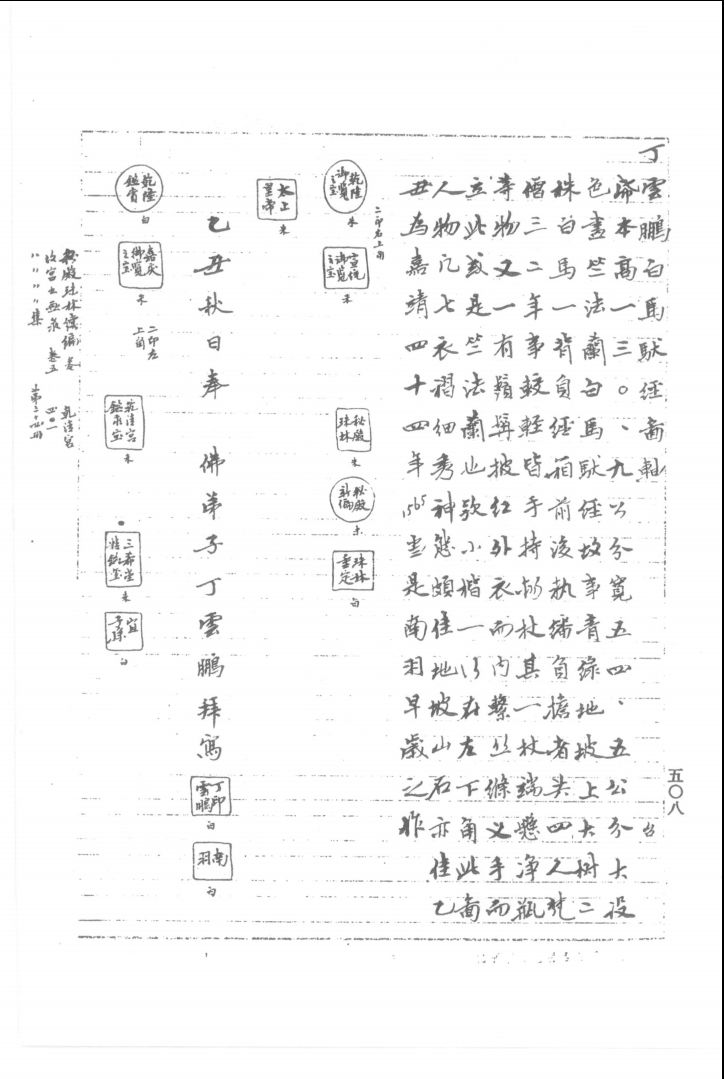 丁雲鵬白馬馱經啚軸 台
紙本高一三〇、九公分寬五四、五公分大設
色畫竺法蘭白馬馱經故事青綠地坡上大樹二
株白馬一背負經箱前後执繙負擔者共四人梵
僧三二年事較輕皆手持杖其一杖端懸淨瓶
等物又一有鬚髯披紅外衣而內繫丝絛义手而
立此或是竺法蘭也欵小楷一行在左下角此啚
人物凡七衣褶細秀神態頗佳地坡山石亦佳乙
丑為嘉靖四十四年1565當是南羽早歲之作
五〇八
二印右上角
乾隆御覽之宝 朱
宣統御覽之宝 朱
秘殿珠林 朱
秘殿新編 朱
珠林重定 白
太上皇帝 朱
乙丑秋日奉 佛弟子丁雲鵬拜寫
丁雲鵬印 白
南羽 白
乾隆鑑賞 白
嘉庆御覽之宝 朱
二印左上角
乾清宮鑑藏宝 朱
三希堂精鉴玺 朱
宜子孫 白
秘殿珠林續編 卷 乾清宮
故宮书画录 卷五 四〇一
〃〃〃〃集 上第二十九册